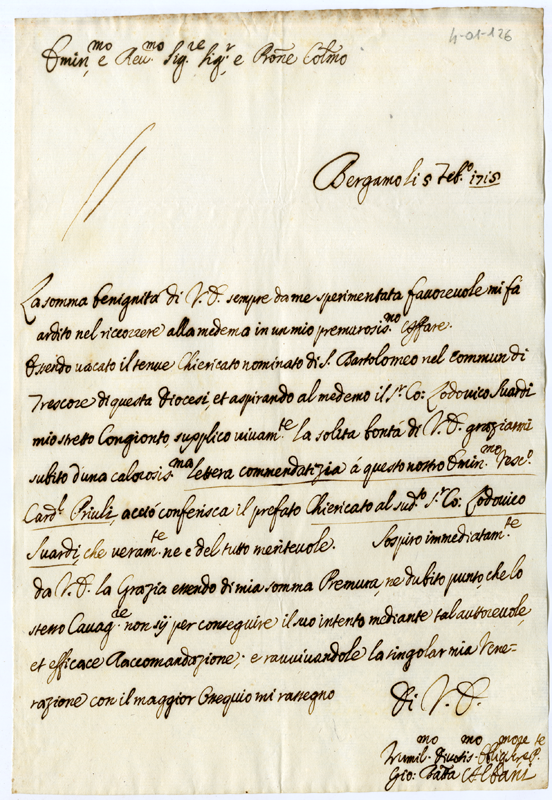 4-01-126
Emin.mo e Reu.mo Sig.re Sig.r e Prõne Colmo
Bergamo li 5 Feb.o 1715
La somma benignità di V. E. sempre da me sperimentata fauoreuole mi fà
ardito nel riccorrere alla medema in un mio premurosis.mo affare.
Essendo uacato il tenue Chiericato nominato di S. Bartolomeo nel commun di
Trescore di questa Diocesi, et aspirando al medemo il S.r Co: Lodouico Suardi
mio stretto Congionto supplico uiuam.te la solita bontà di V. E. graziarmi
subito d'una calorosis.ma lettera commendatizia à questo nostro Emin.mo Vesc.o
Card.l Priuli, acciò conferisca il prefato Chiericato al sud.o S.r Co: Lodouico
Suardi, che ueram.te ne e del tutto meriteuole. Sospiro immediatam.te
da V. E. la Grazia essendo di mia somma Premura, ne dubito punto, che lo
stesso Cauag.re non sij per conseguire il suo intento mediante tal autoreuole,
et efficace Raccomandazione; e rauuiuandole la singolar mia Vene=
razione con il maggior Ossequio mi rassegno
Di V. E.
Humil.mo Diuotis.mo Oblig.
Gio: Batta Albani